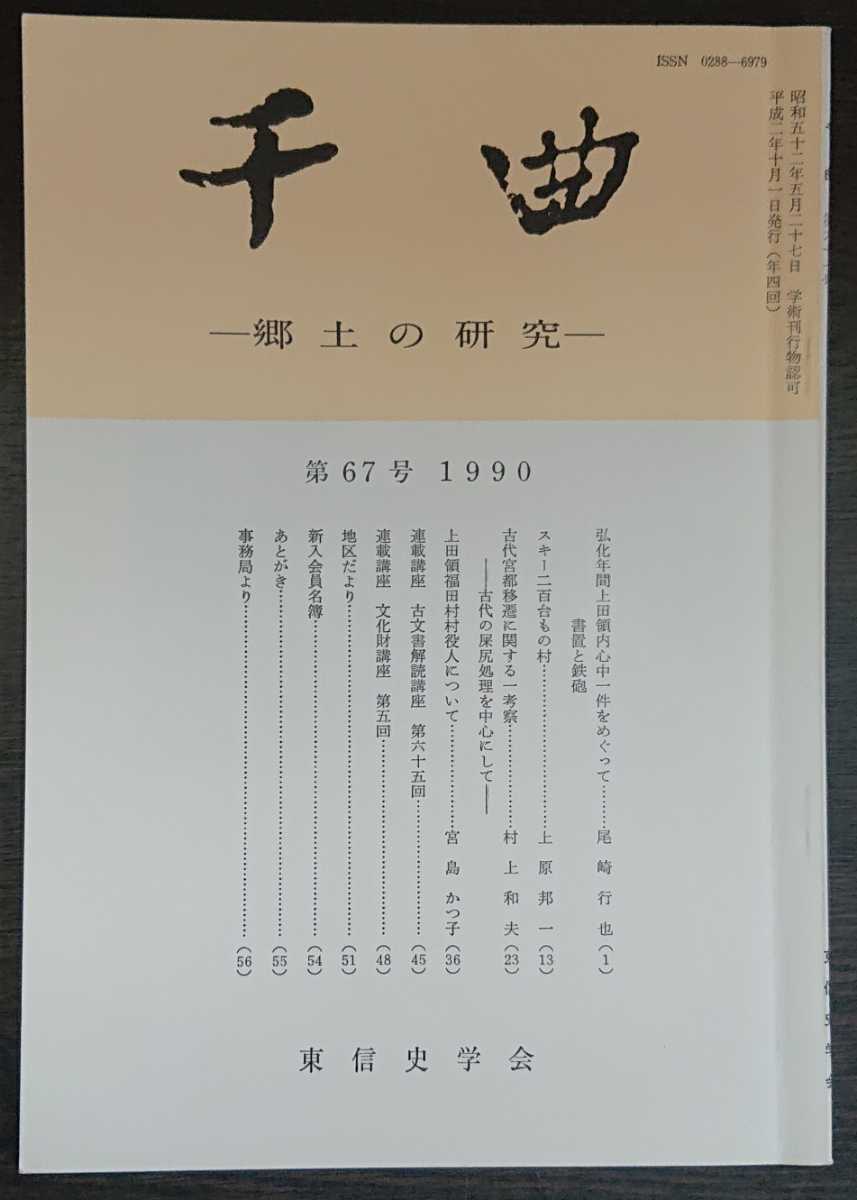 ISSN 0288―6979
昭和五十二年五月二十七日 学術刊行物認可
平成二年十月一日発行(年四回)
千曲
―郷土の研究―
第67号 1990
弘化年間上田領内心中一件をめぐって………尾崎行也(1)
書置と鉄砲
スキー二百台もの村………………………上原邦一(13)
古代宮都移遷に関する一考察………………村上和夫(23)
――古代の屎尻処理を中心にして――
上田領福田村村役人について………………宮島かつ子(36)
連載講座 古文書解読講座 第六十五回………………(45)
連載講座 文化財講座 第五回………………………(48)
地区だより……………………………………………(51)
新入会員名簿…………………………………………(54)
あとがき………………………………………………(55)
事務局より……………………………………………(56)
東信史学会
東信史学会